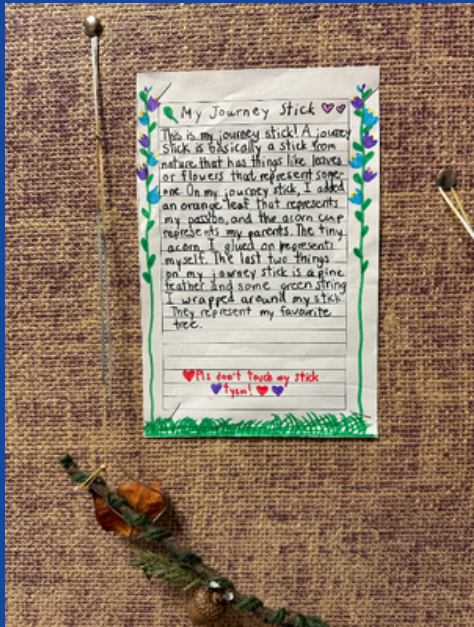 My Journey Stick
This is my journey stick! A journey
stick is basically a stick from
nature that has things like leaves
or flowers that represent some-
one. On my journey stick, I added
an orange leaf that represents
my passion, and the acorn cup
represents my parents. The tiny
acorn, I glued on represents
myself. The last two things
on my journey stick is a pine
feather and some green string
I wrapped around my stick.
They represent my favourite
tree.
Pls don't touch my stick
tysm!